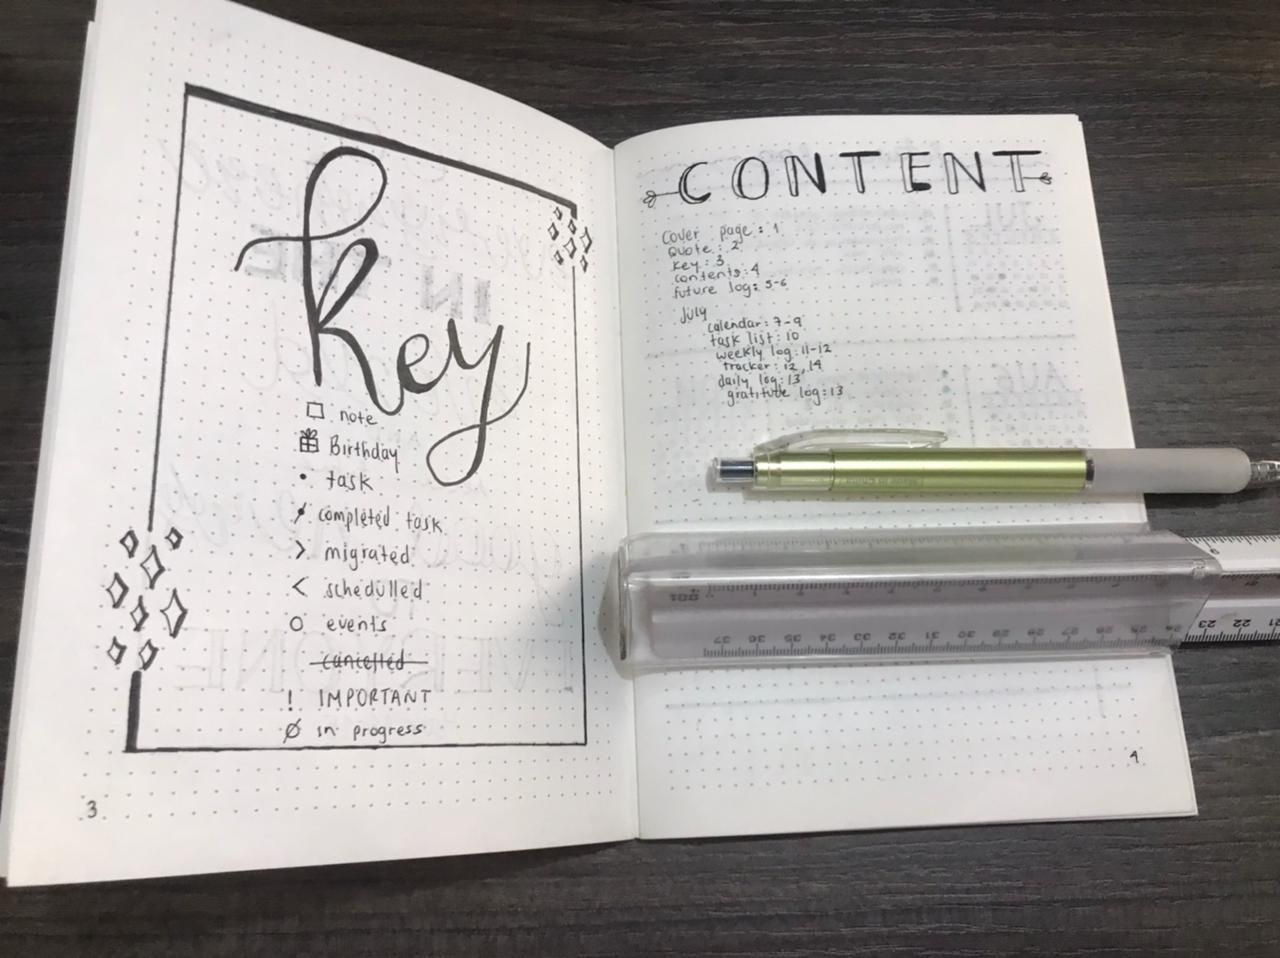 key
note
Birthday
task
completed task
migrated
schedulled
events
cancelled
! IMPORTANT
in progress
3
CONTENT
Cover page: 1
Quote: 2
key: 3
contents: 4
future log: 5-6
July
calendar: 7-9
task list: 10
weekly log: 11-12
tracker: 12, 14
daily log: 13
gratitude log: 13
37 36 35 34 33 32 31 30 29 28 27 26 25 24 23 22 21
4